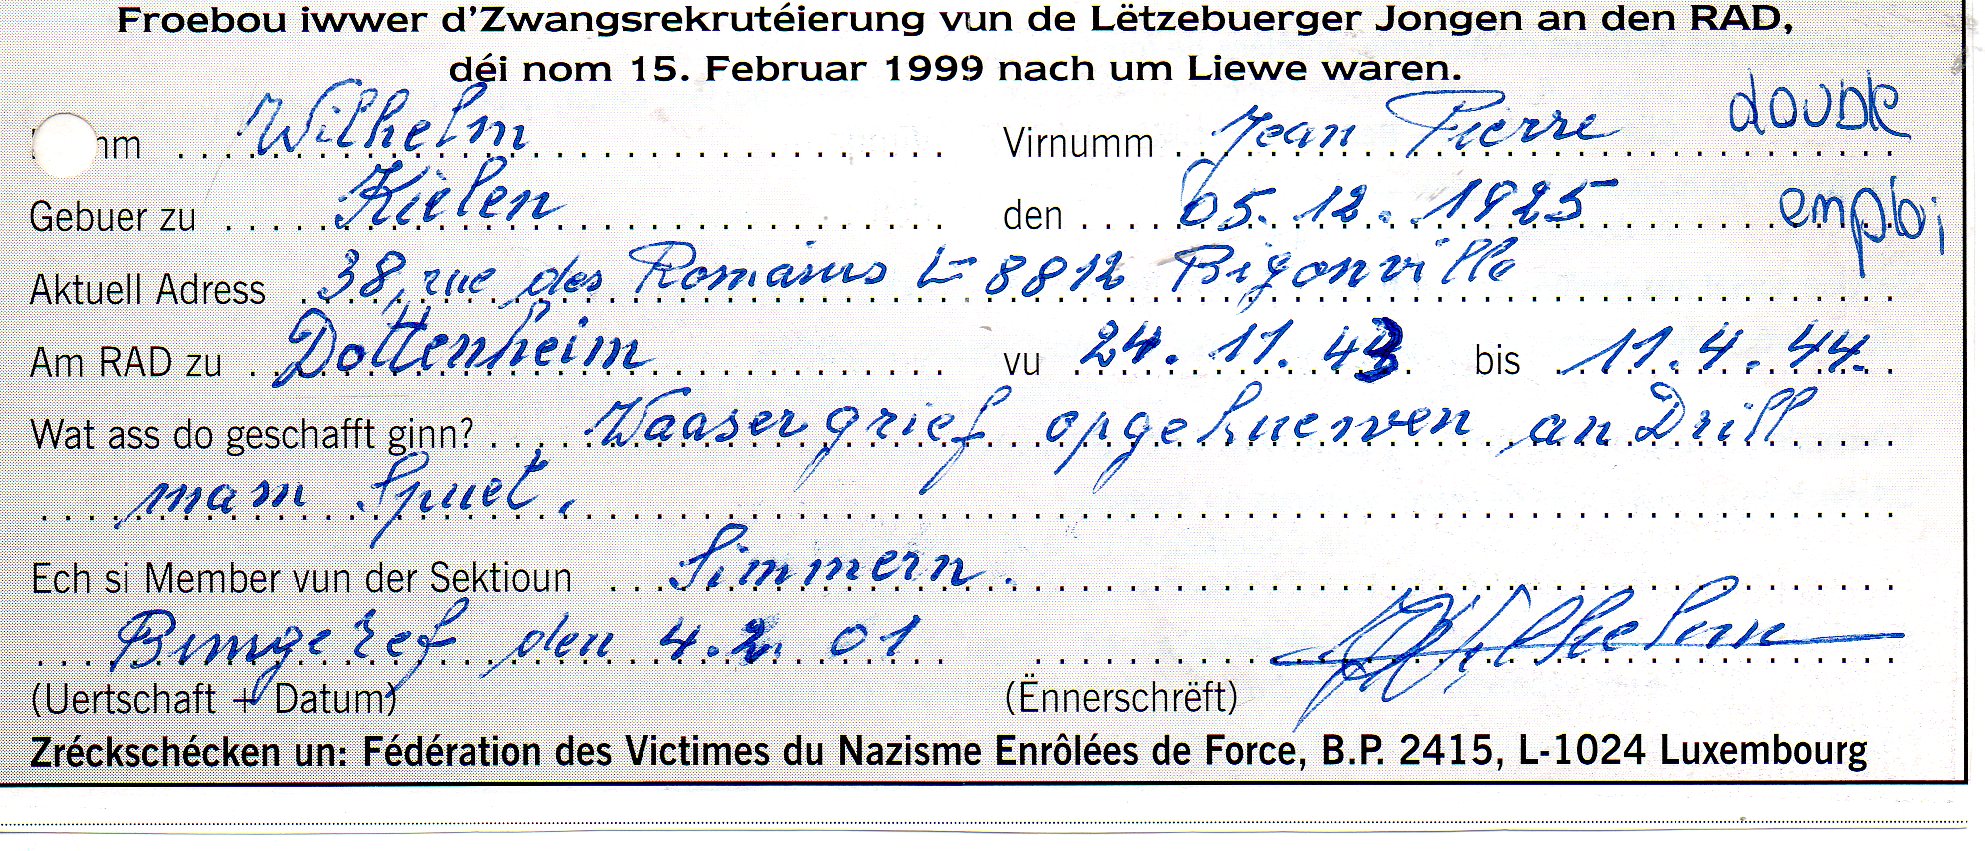 Froebou iwwer d'Zwangsrekrutéierung vun de Lëtzebuerger Jongen an den RAD,
déi nom 15. Februar 1999 nach um Liewe waren.
mm Wilhelm Virnumm Jean Pierre double
Gebuer zu Kielen den 05. 12. 1925 emploi
Aktuell Adress 38, rue des Romains L-8812 Bigonville
Am RAD zu Dottenheim vu 24. 11. 43 bis 11. 4. 44.
Wat ass do geschafft ginn? Waasergrief opgehuewen an Drill
mam Spuet.
Ech si Member vun der Sektioun Simmern.
den 4. 2. 01 Wilhelm
(Uertschaft + Datum) (Ënnerschrëft)
Zréckschécken un: Fédération des Victimes du Nazisme Enrôlées de Force, B.P. 2415, L-1024 Luxembourg